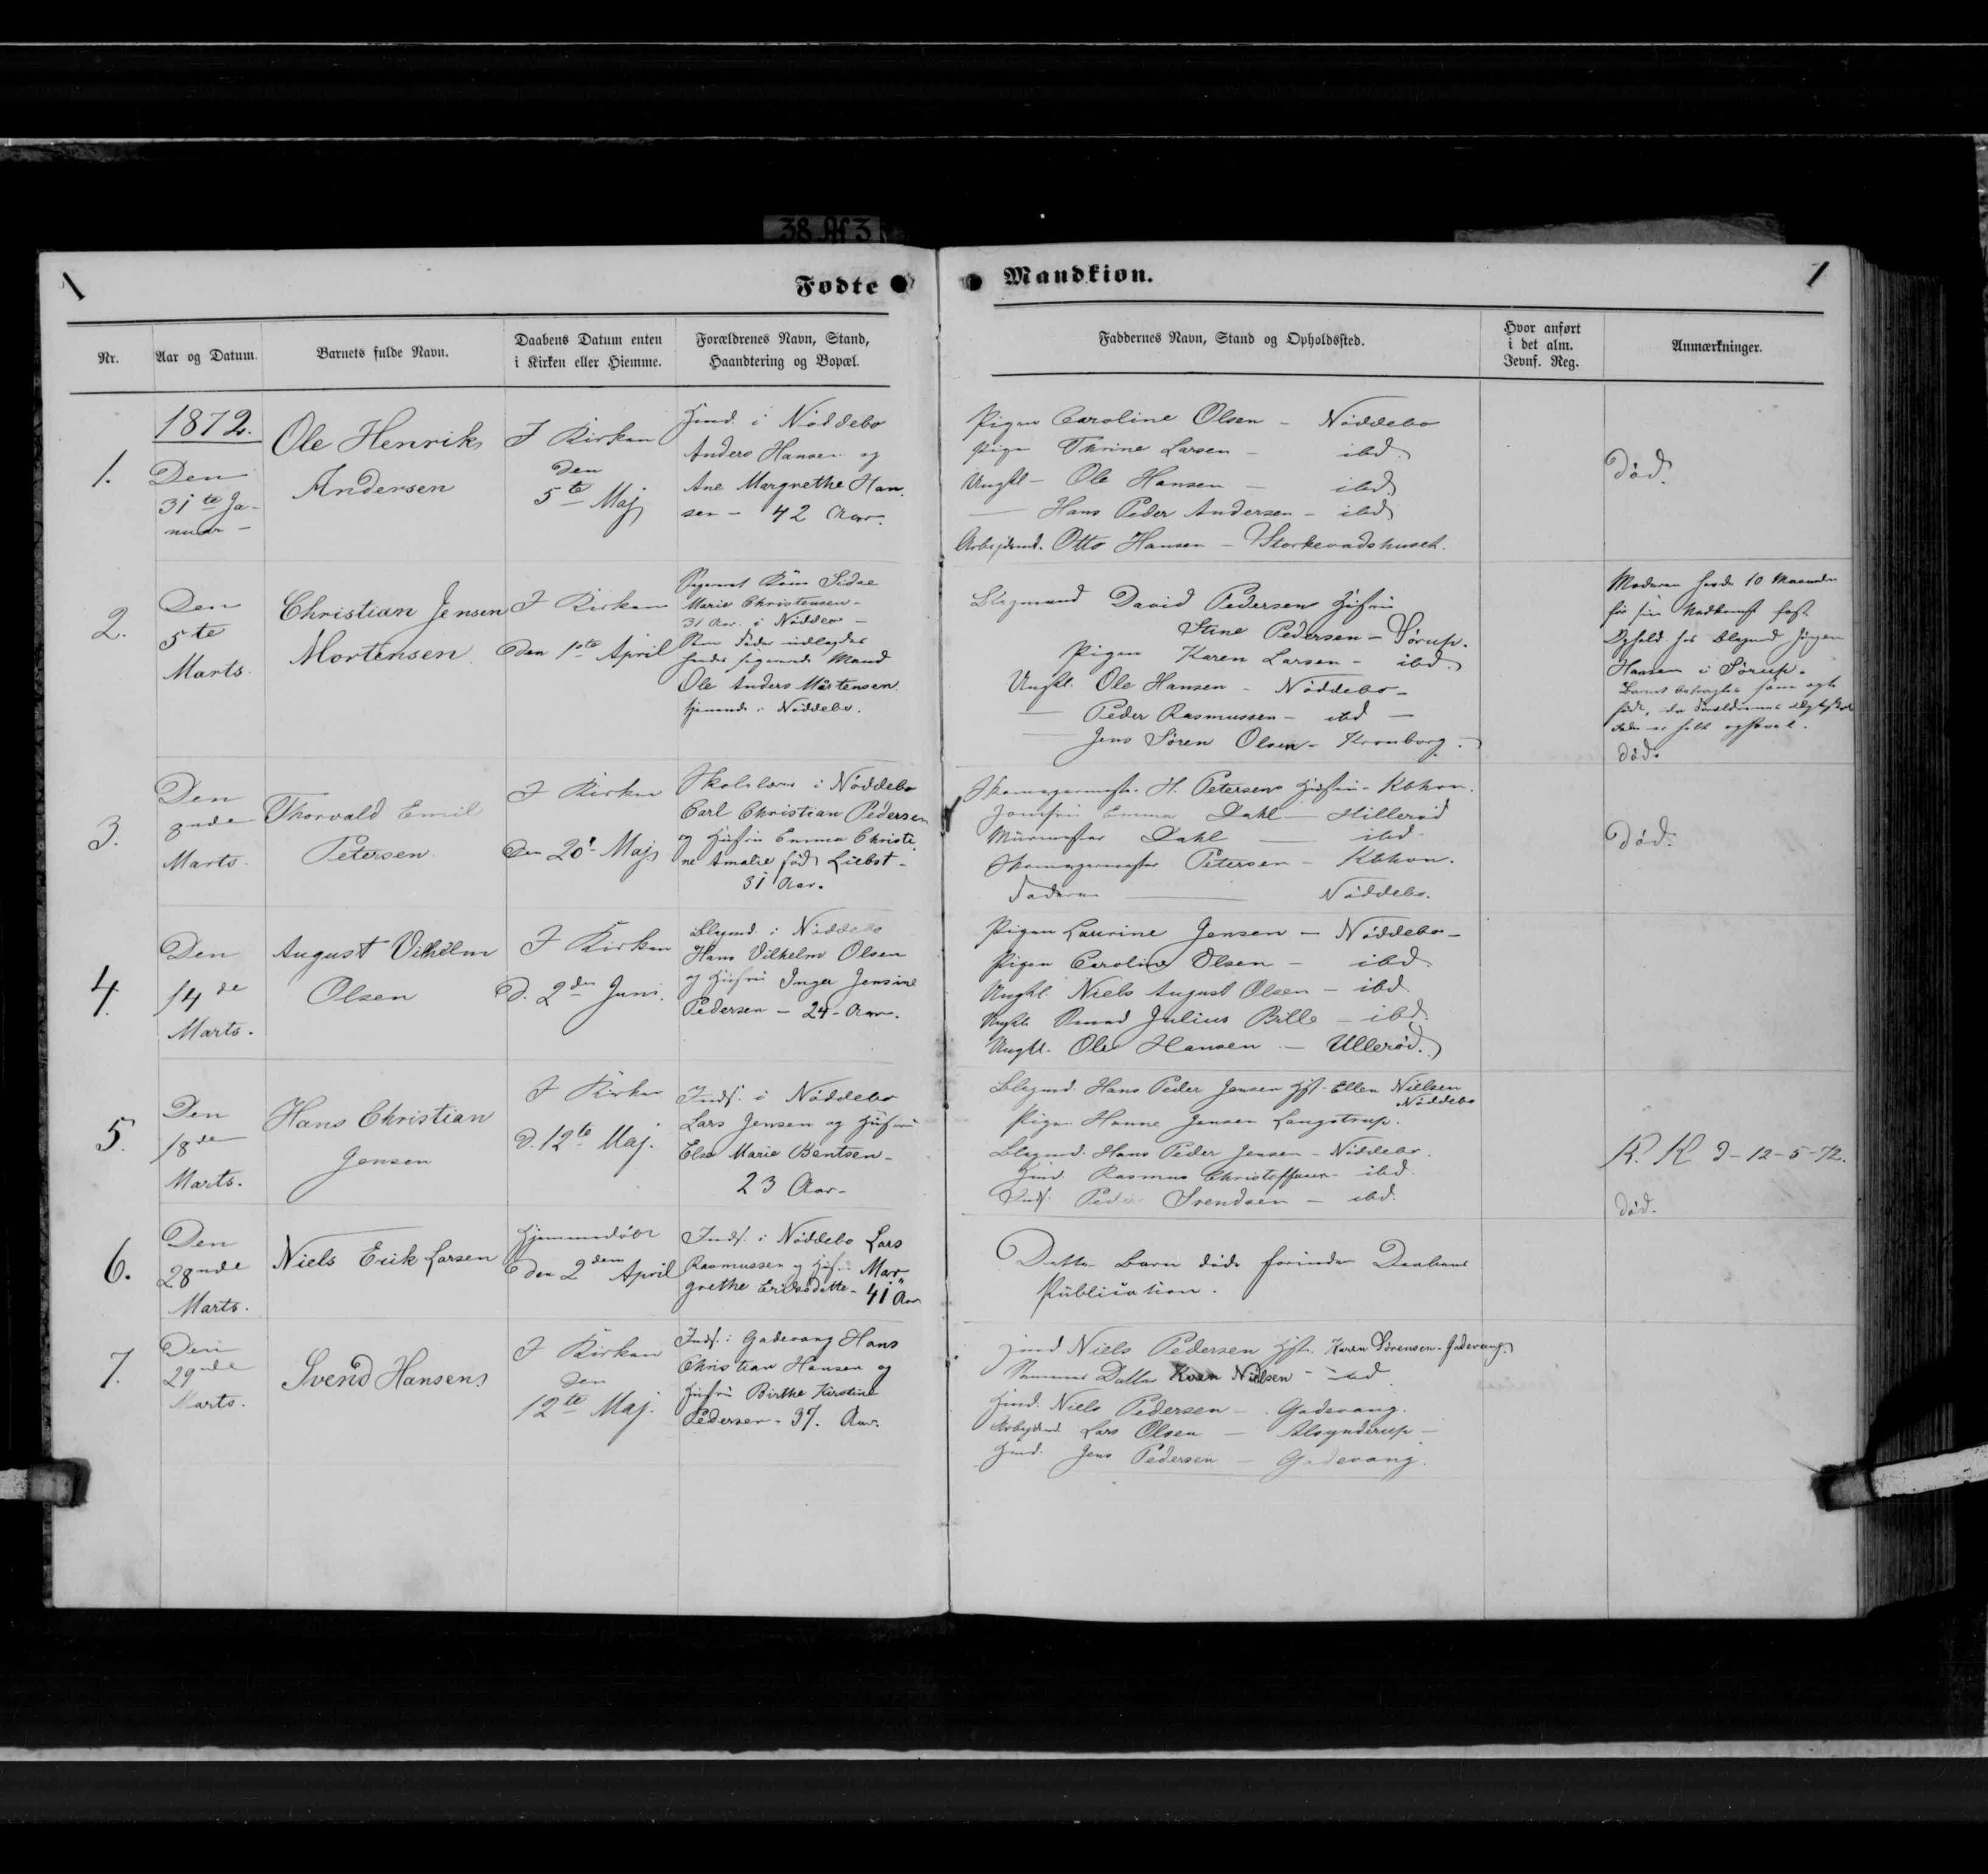 38 Af 3
1
Fødte
Mandkion.
1
Nr.
Aar og Datum.
Barnets fulde Navn.
Daabens Datum enten
i Kirken eller Hiemme.
Forældrenes Navn, Stand,
Haandtering og Bopæl.
Faddernes Navn, Stand og Opholdssted.
Hvor anført
i det alm.
Jevnf. Reg.
Anmærkninger.
1.
1872.
Den
31te Ja-
nuar -
Ole Henrik
Andersen
I Kirken
den
5te Maj
Hmd. i Nøddebo
Anders Hansen og
Ane Margrethe Han-
sen - 42 Aar.
Pigen Caroline Olsen - Nøddebo
Pige Thrine Larsen - ibd.
Ungkl - Ole Hansen - ibd.
Hans Peder Andersen - ibd
Arbejdsmd. Otto Hansen - Storkevadshuset.
død.
2.
Den
5te
Marts.
Christian Jensen
Mortensen
I Kirken
den 1ste April
Sidse
Marie Christensen -
31 Aar. i Nøddebo -
Som Fader udlægdes
Mand
Ole Anders Mortensen
tjenende i Nøddebo.
David Pedersen Hustru
Stine Pedersen - Sørup.
Pigen Karen Larsen - ibd.
Ungkl. Ole Hansen - Nøddebo -
Peder Rasmussen - ibd -
Jens Søren Olsen - Kronborg.
Moderen havde 10 Maaneder
før sin Nedkomst fast
Ophold hos Jørgen
Hansen i Sørup.
Barnet betragtes som
død.
3.
Den
8nde
Marts.
Thorvald Emil
Petersen
I Kirken
den 20' Maj
Skolelærer i Nøddebo
Carl Christian Pedersen
og Hustru Emma Christi-
ne Amalie født Liebst -
31 Aar.
Skomagermester H. Petersens Hustru - Kbhvn.
Jomfru Emma Dahl - Hillerød
Murmester Dahl - ibd.
Skomagermester Petersen - Kbhvn.
Faderen Nøddebo.
død.
4.
Den
14de
Marts.
August Vilhelm
Olsen
I Kirken
d. 2den Juni.
i Nøddebo
Hans Vilhelm Olsen
og Hustru Inger Jensine
Pedersen - 24 - Aar.
Pigen Laurine Jensen - Nøddebo -
Pigen Caroline Olsen - ibd.
Ungkl. Niels August Olsen - ibd
Ungkl. Julius Bille - ibd.
Ungkl. Ole Hansen - Ullerød.
5.
Den
18de
Marts.
Hans Christian
Jensen
I Kirken
d. 12te Maj.
Inds. i Nøddebo
Lars Jensen og Hustru
Else Marie Bentsen -
23 Aar -
Hans Peder Jensen Hst. Ellen Nielsen
Nøddebo
Pigen Hanne Jensen Langstrup.
Hans Peder Jensen - Nøddebo.
Hmd. Rasmus Christoffersen - ibd.
Inds. Peder Svendsen - ibd.
K. K d - 12 - 5 - 72.
død.
6.
Den
28nde
Marts.
Niels Erik Larsen
Hjemmedøbt
den 2den April
Inds. i Nøddebo Lars
Rasmussen og Hustru Mar-
grethe Eriksdatter - 41 Aar
Dette Barn døde forinden Daabens
Publication.
7.
Den
29nde
Marts.
Svend Hansen
I Kirken
den
12te Maj.
Inds. i Gadevang Hans
Christian Hansen og
Hustru Birthe Kirstine
Pedersen - 37. Aar.
Hmd Niels Pedersen Hst. Karen Sørensen - Gadevang.
Sammes Datter Karen Nielsen - ibd.
Hmd. Niels Pedersen - Gadevang.
Arbejdsmd. Lars Olsen - Alsynderup -
Hmd. Jens Pedersen - Gadevang.